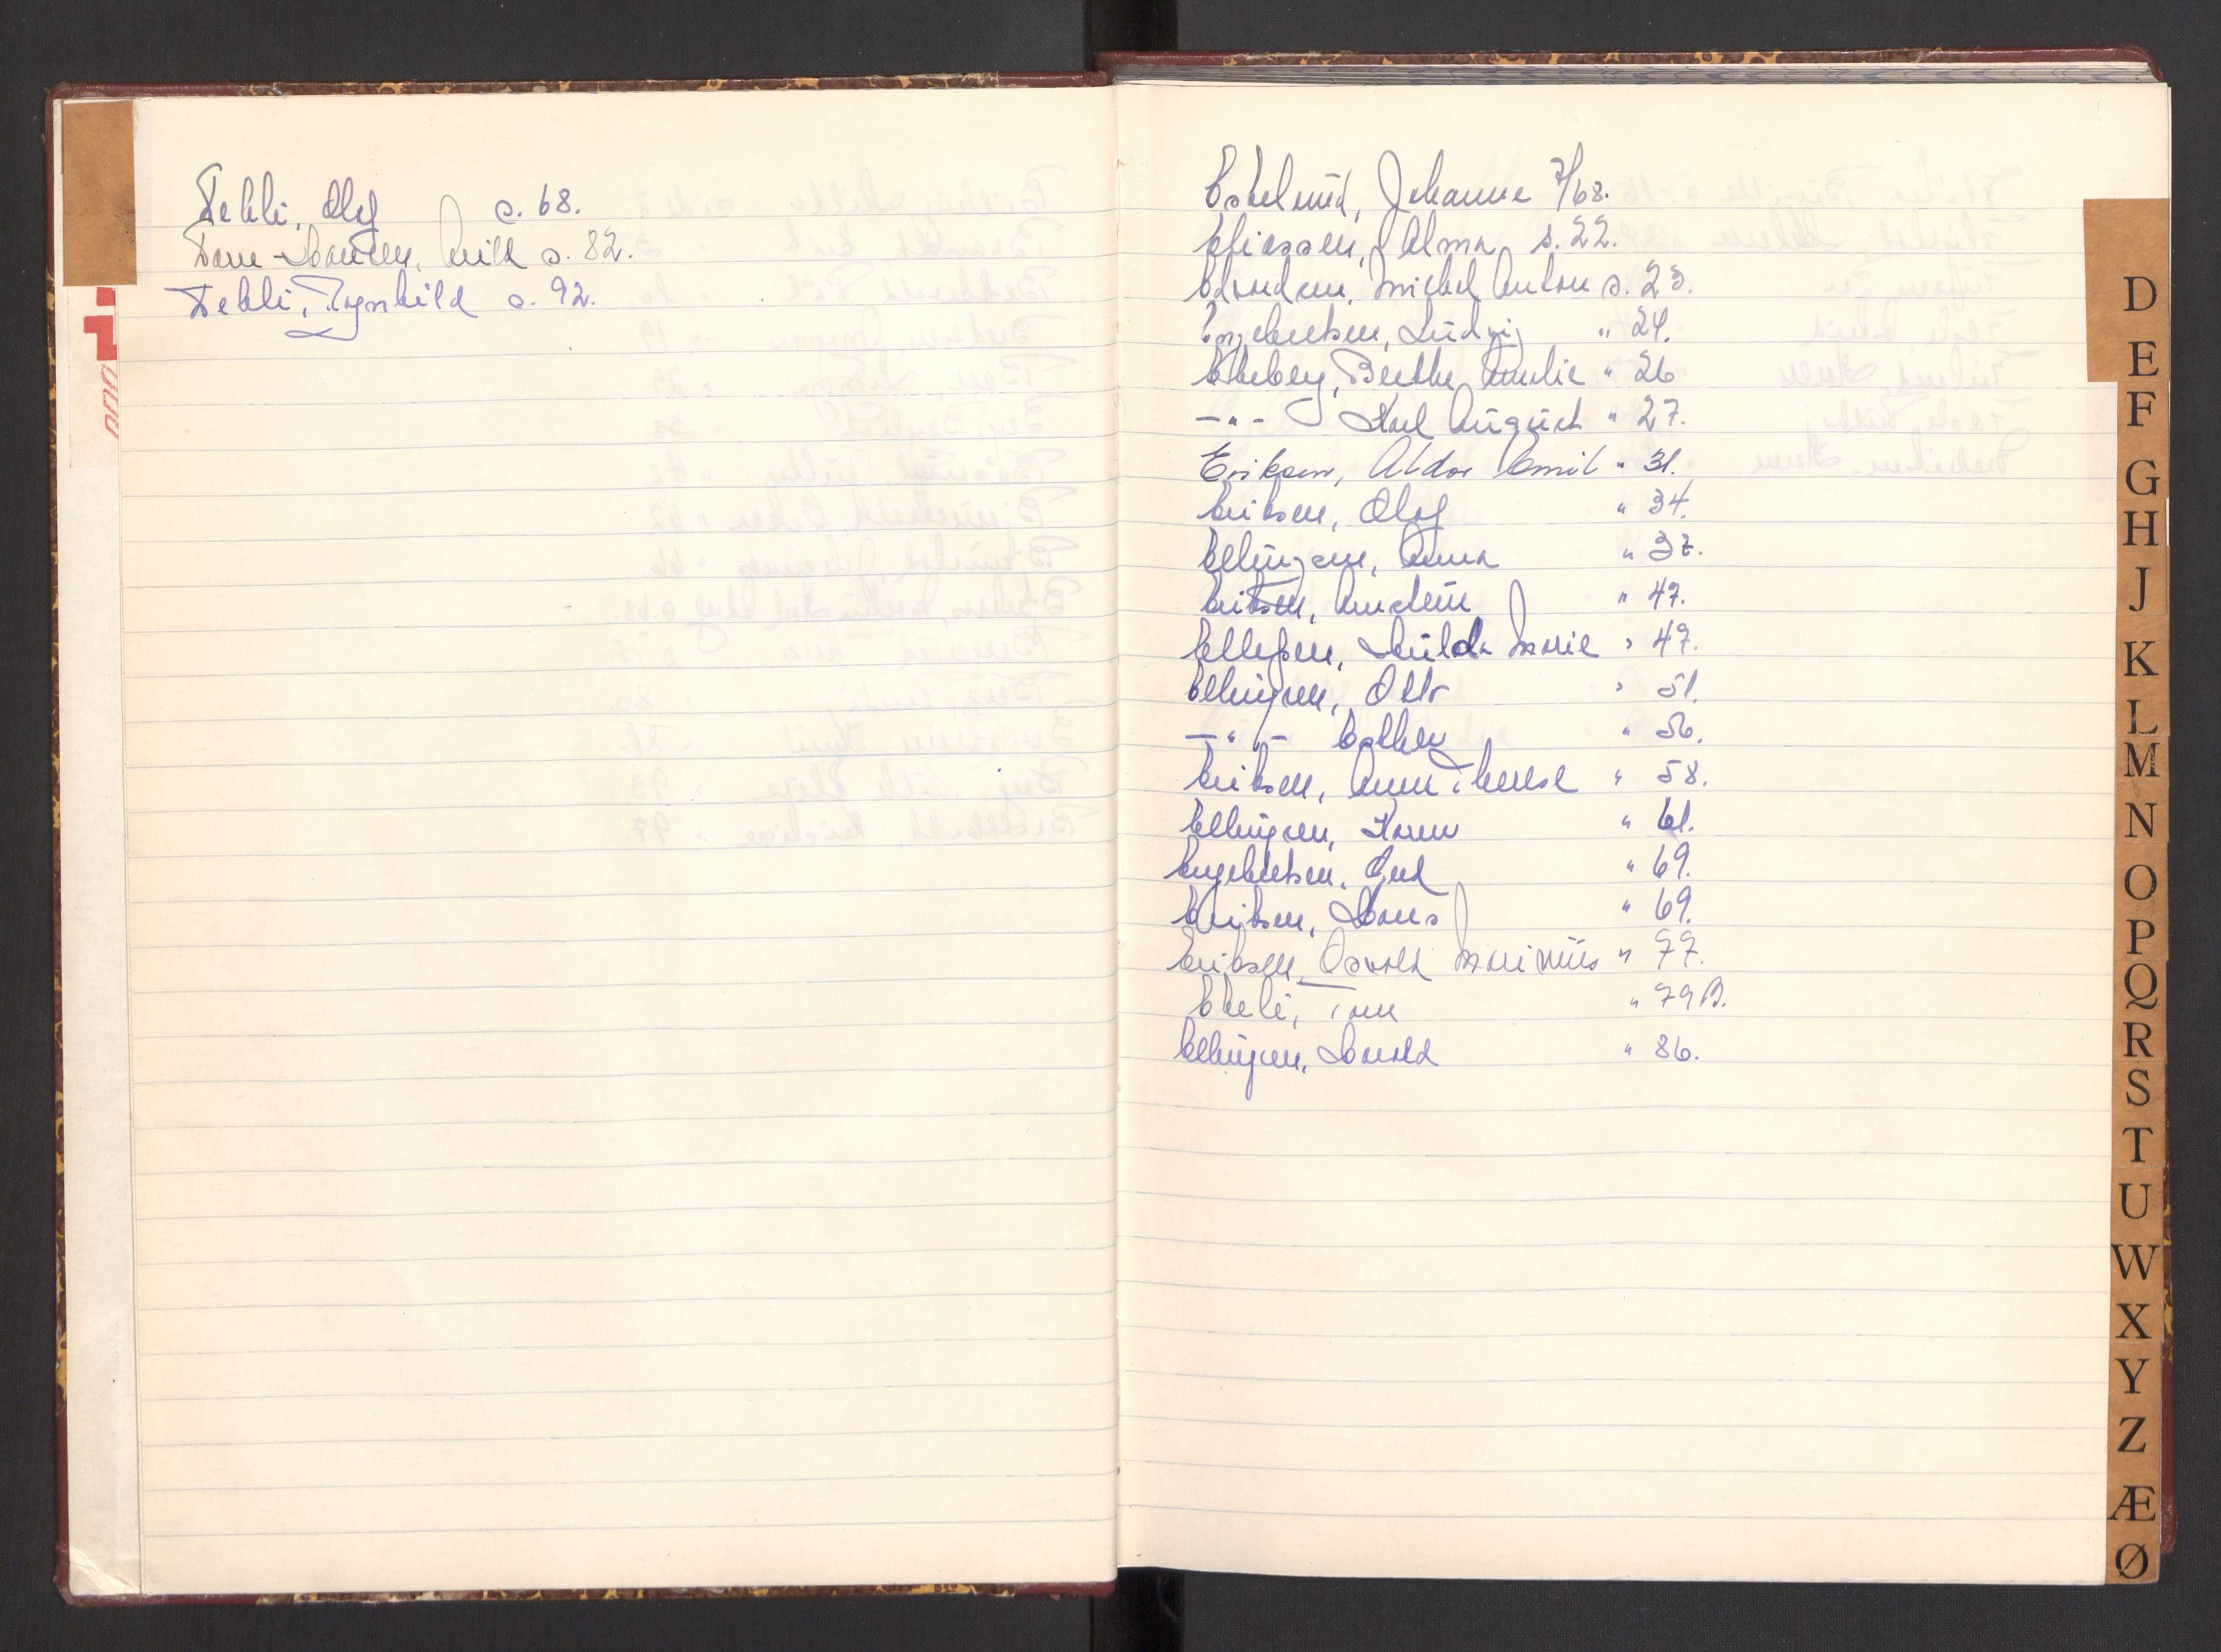 Dehli, Olaf s. 68.
Dehli, Ragnhild s. 92.
Eskelund, Johanne 7/68.
Eliassen, Alma s. 22.
Edvardsen, Michal Anton s. 23.
Engebretsen, Ludvig " 24.
Ekeberg, Berthe Amalie " 26
—"— Karl August " 27.
Eriksen, Aldor Emil " 31.
Eriksen, Olaf " 34.
Ellingsen, Anna " 37.
Eriksen, " 47.
Ellefsen, Hulda Marie " 49.
Ellingsen, Otto " 51.
—"— Esther " 56.
Eriksen, Anne Therese " 58.
Ellingsen, Karen " 61.
Engebretsen, " 69.
Eriksen, Hans " 69.
Eriksen, Osvald Marinius " 77.
" 79 B.
Ellingsen, Harald " 86.
D
E
F
G
H
J
K
L
M
N
O
P
Q
R
S
T
U
W
X
Y
Z
Æ
Ø